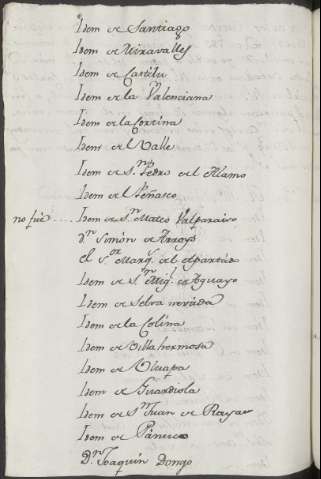 Idem de Santiago
Idem de Miravalles
Idem de Castilu
Idem de la Valenciana
Idem de la Cortina
Idem de el Valle
Idem de Sn. Pedro de el Alamo
Idem de el Peñasco
no fué .... Idem de Sn. Mateo Valparaiso
Dn. Simón de Arroyo
el Sor. Marqs. de el Apartado
Idem de Sn. Migl. de Aguayo
Idem de Selva nevada
Idem de la Colina
Idem de Villa hermosa
Idem de Uluapa
Idem de Guardiola
Idem de Sn. Juan de Rayas
Idem de Pánuco
Dn. Joaquin Dongo